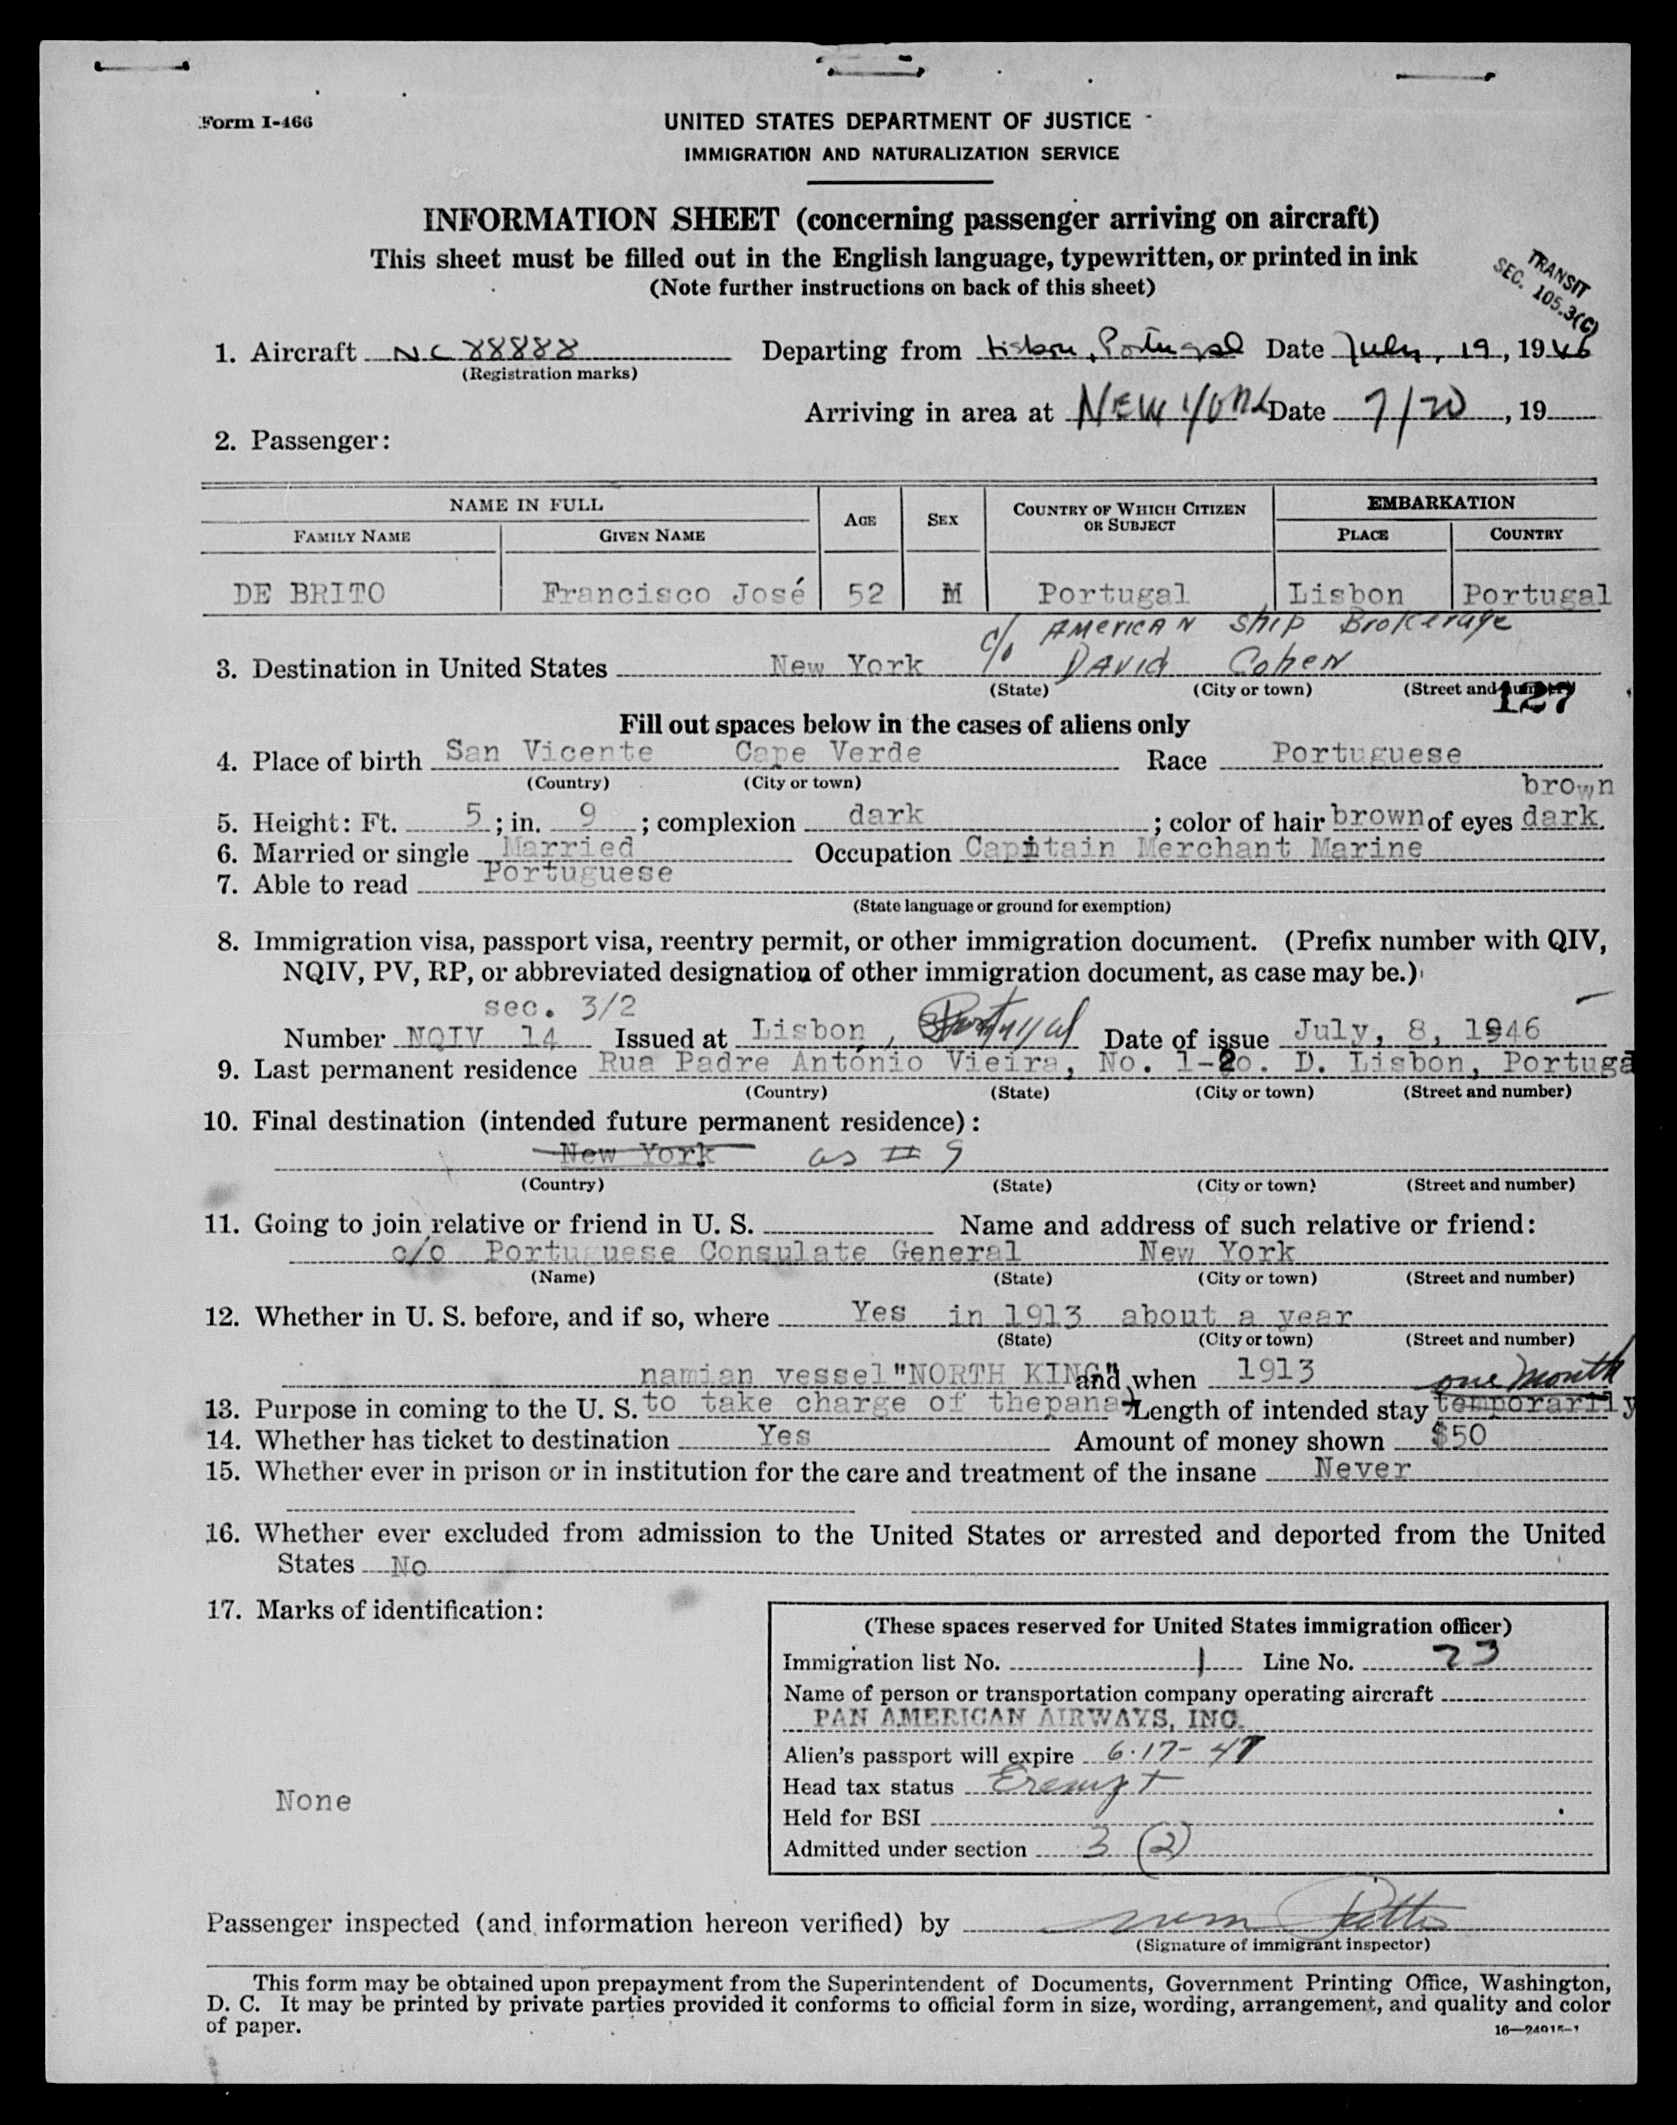 Form I-466
UNITED STATES DEPARTMENT OF JUSTICE
IMMIGRATION AND NATURALIZATION SERVICE
INFORMATION SHEET (concerning passenger arriving on aircraft)
This sheet must be filled out in the English language, typewritten, or printed in ink
(Note further instructions on back of this sheet)
TRANSIT
SEC. 105.3(C)
1. Aircraft NC 88888 Departing from Lisbon, Portugal Date July, 19, 1946
(Registration marks)
Arriving in area at NEW YORK Date 7/20, 19
2. Passenger:
NAME IN FULL AGE SEX COUNTRY OF WHICH CITIZEN OR SUBJECT EMBARKATION
FAMILY NAME GIVEN NAME PLACE COUNTRY
DE BRITO Francisco José 52 M Portugal Lisbon Portugal
c/o AMERICAN Ship Brokerage
3. Destination in United States New York c/o DAVID COHEN
(State) (City or town) (Street and number)
127
Fill out spaces below in the cases of aliens only
4. Place of birth San Vicente Cape Verde Race Portuguese
(Country) (City or town)
brown
5. Height: Ft. 5; in. 9; complexion dark; color of hair brown of eyes dark.
6. Married or single Married Occupation Capitain Merchant Marine
7. Able to read Portuguese
(State language or ground for exemption)
8. Immigration visa, passport visa, reentry permit, or other immigration document. (Prefix number with QIV,
NQIV, PV, RP, or abbreviated designation of other immigration document, as case may be.)
sec. 3/2
Number NQIV 14 Issued at Lisbon, Portugal Date of issue July, 8, 1946
9. Last permanent residence Rua Padre António Vieira, No. 1-2o. D. Lisbon, Portuga
(Country) (State) (City or town) (Street and number)
10. Final destination (intended future permanent residence):
New York as # 9
(Country) (State) (City or town) (Street and number)
11. Going to join relative or friend in U. S. Name and address of such relative or friend:
c/o Portuguese Consulate General New York
(Name) (State) (City or town) (Street and number)
12. Whether in U. S. before, and if so, where Yes in 1913 about a year
(State) (City or town) (Street and number)
namian vessel "NORTH KING" and when 1913 one month
13. Purpose in coming to the U. S. to take charge of thepana- Length of intended stay temporarily
14. Whether has ticket to destination Yes Amount of money shown $50
15. Whether ever in prison or in institution for the care and treatment of the insane Never
16. Whether ever excluded from admission to the United States or arrested and deported from the United
States No
17. Marks of identification:
None
(These spaces reserved for United States immigration officer)
Immigration list No. 1 Line No. 23
Name of person or transportation company operating aircraft
PAN AMERICAN AIRWAYS, INC.
Alien's passport will expire 6-17-47
Head tax status Exempt
Held for BSI
Admitted under section 3 (2)
Passenger inspected (and information hereon verified) by
(Signature of immigrant inspector)
This form may be obtained upon prepayment from the Superintendent of Documents, Government Printing Office, Washington,
D. C. It may be printed by private parties provided it conforms to official form in size, wording, arrangement, and quality and color
of paper.
16—24915-1